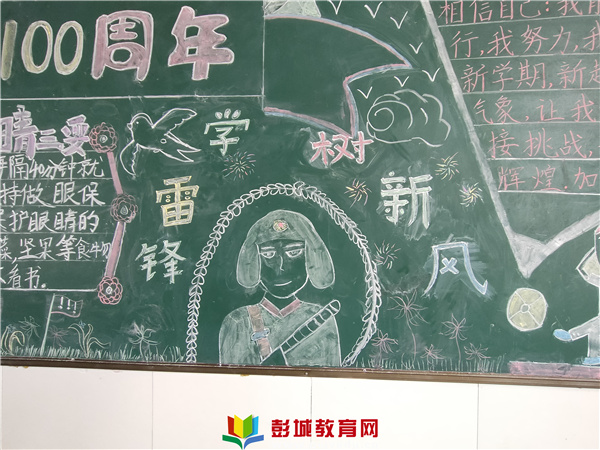 100周年
晴三要
每隔40分钟就
持做眼保
护眼睛的
菜,坚果等食牛物
看书.
学
雷
锋
树
新
风
相信自己:我
行,我努力,我
新学期,新起
气象,让我
接挑战,
辉煌.加
彭城教育网